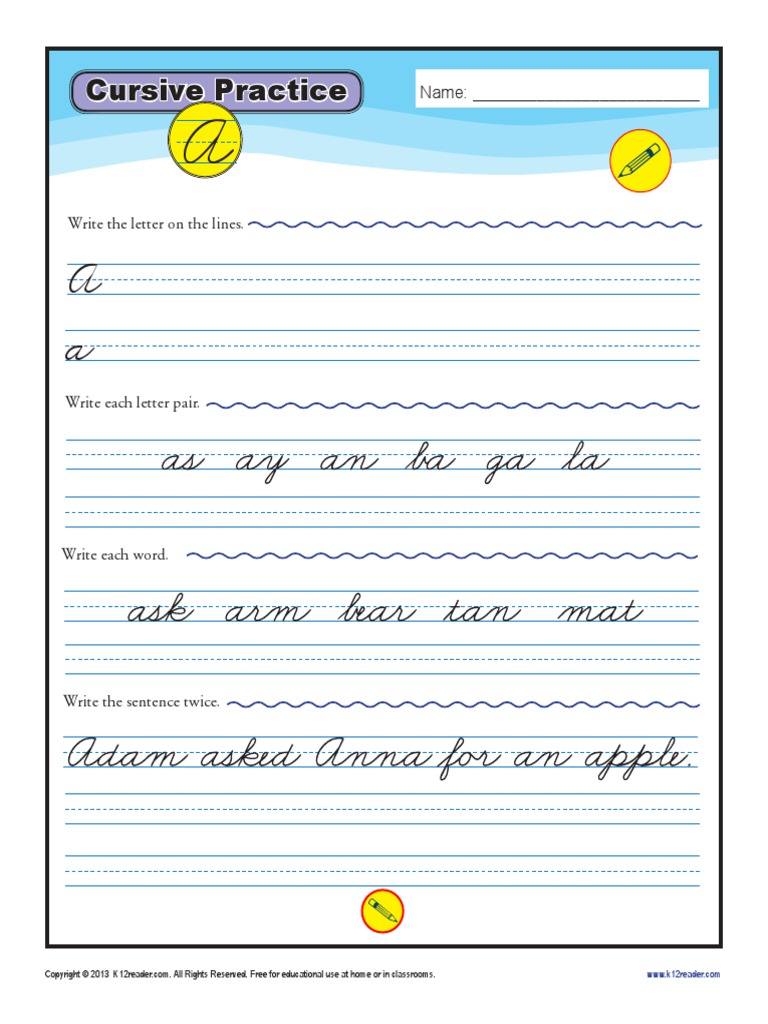 Cursive Practice
Name: ____________________
A
Write the letter on the lines.
A
a
Write each letter pair.
as ay an ba ga la
Write each word.
ask arm bear tan mat
Write the sentence twice.
Adam asked Anna for an apple.
Copyright © 2013 K12reader.com. All Rights Reserved. Free for educational use at home or in classrooms. www.k12reader.com